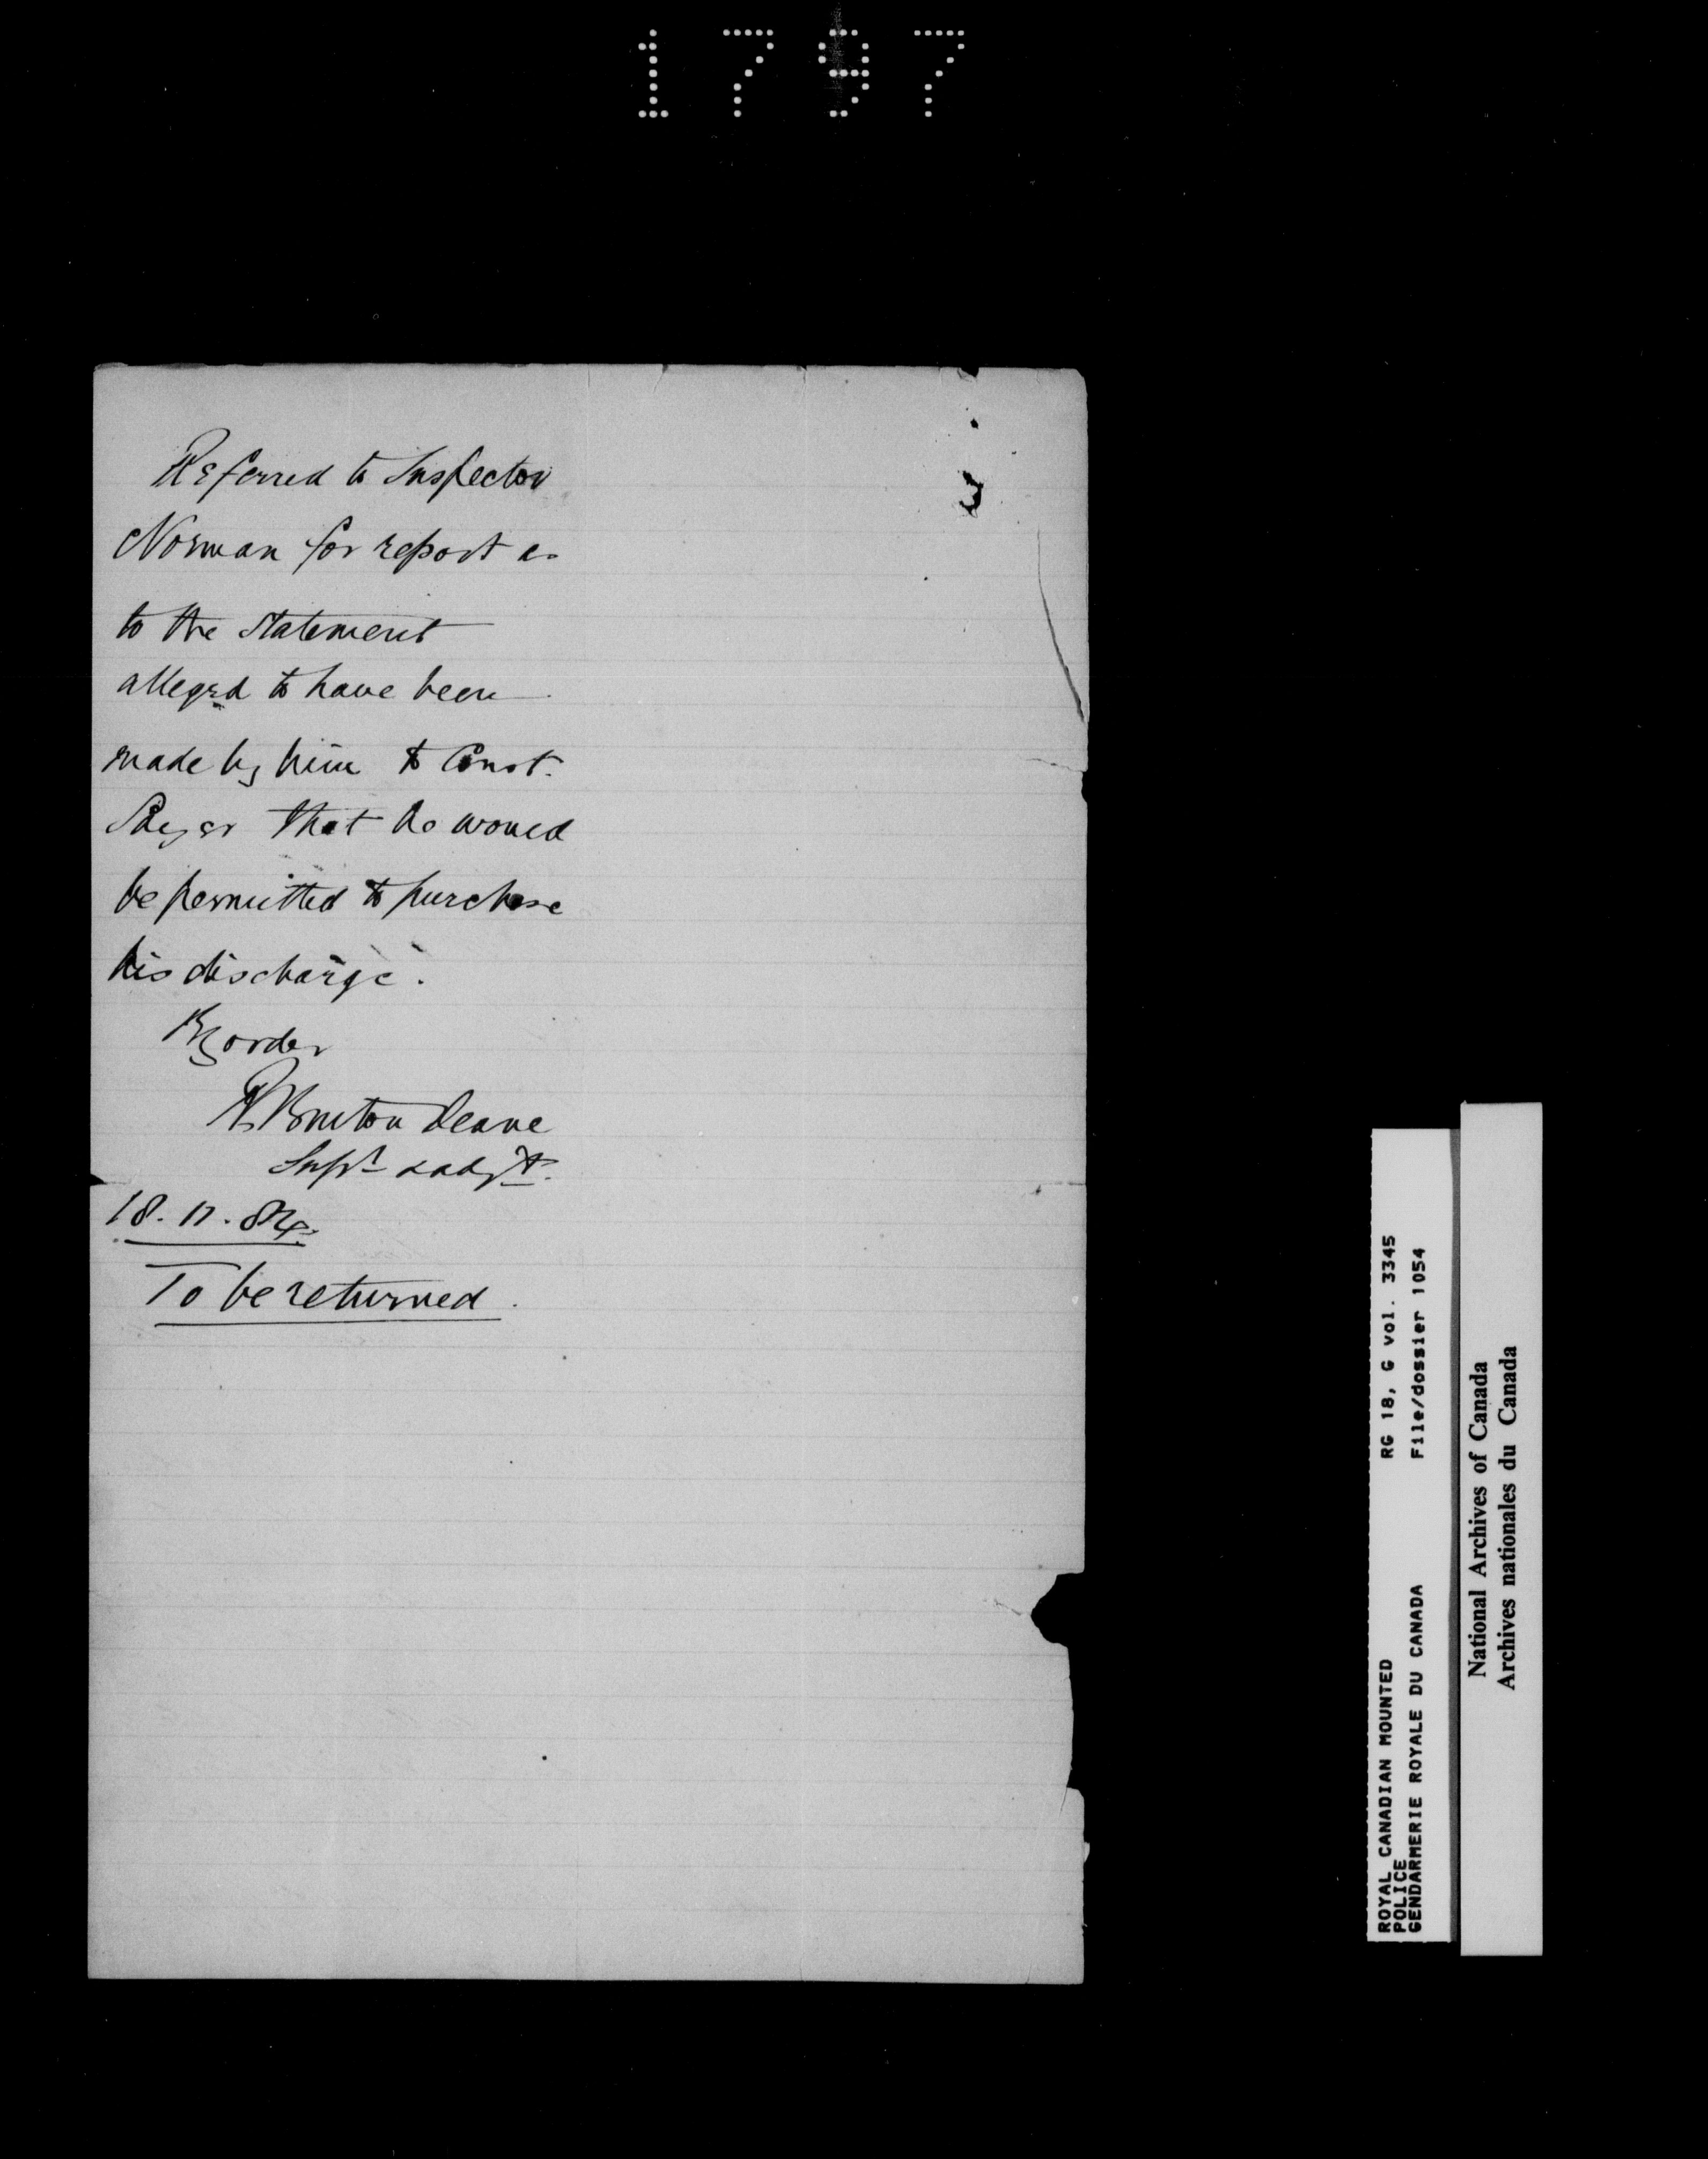 1797
Referred to Inspector
Norman for report as
to the statement
alleged to have been
made by him to Const.
that he would
be permitted to purchase
his discharge.
By order
R Burton Deane
Supt & Adjt.
18.11.84
To be returned.
ROYAL CANADIAN MOUNTED RG 18, G vol. 3345
POLICE
GENDARMERIE ROYALE DU CANADA File/dossier 1054
National Archives of Canada
Archives nationales du Canada